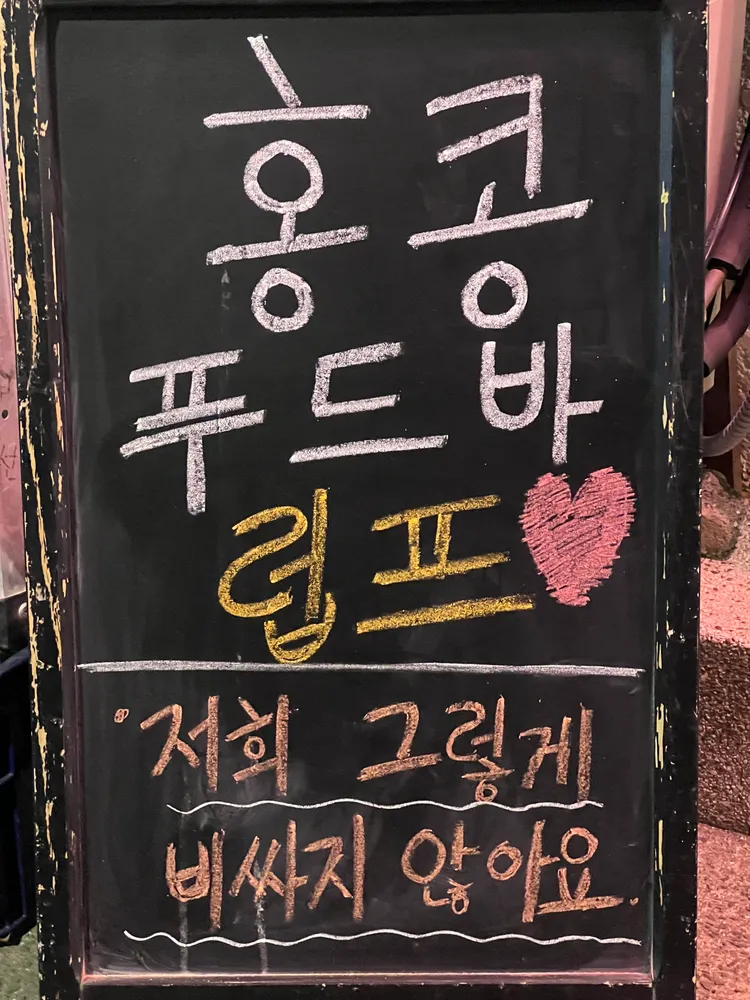 홍콩
푸드바
럽프
저희 그렇게
비싸지 않아요.